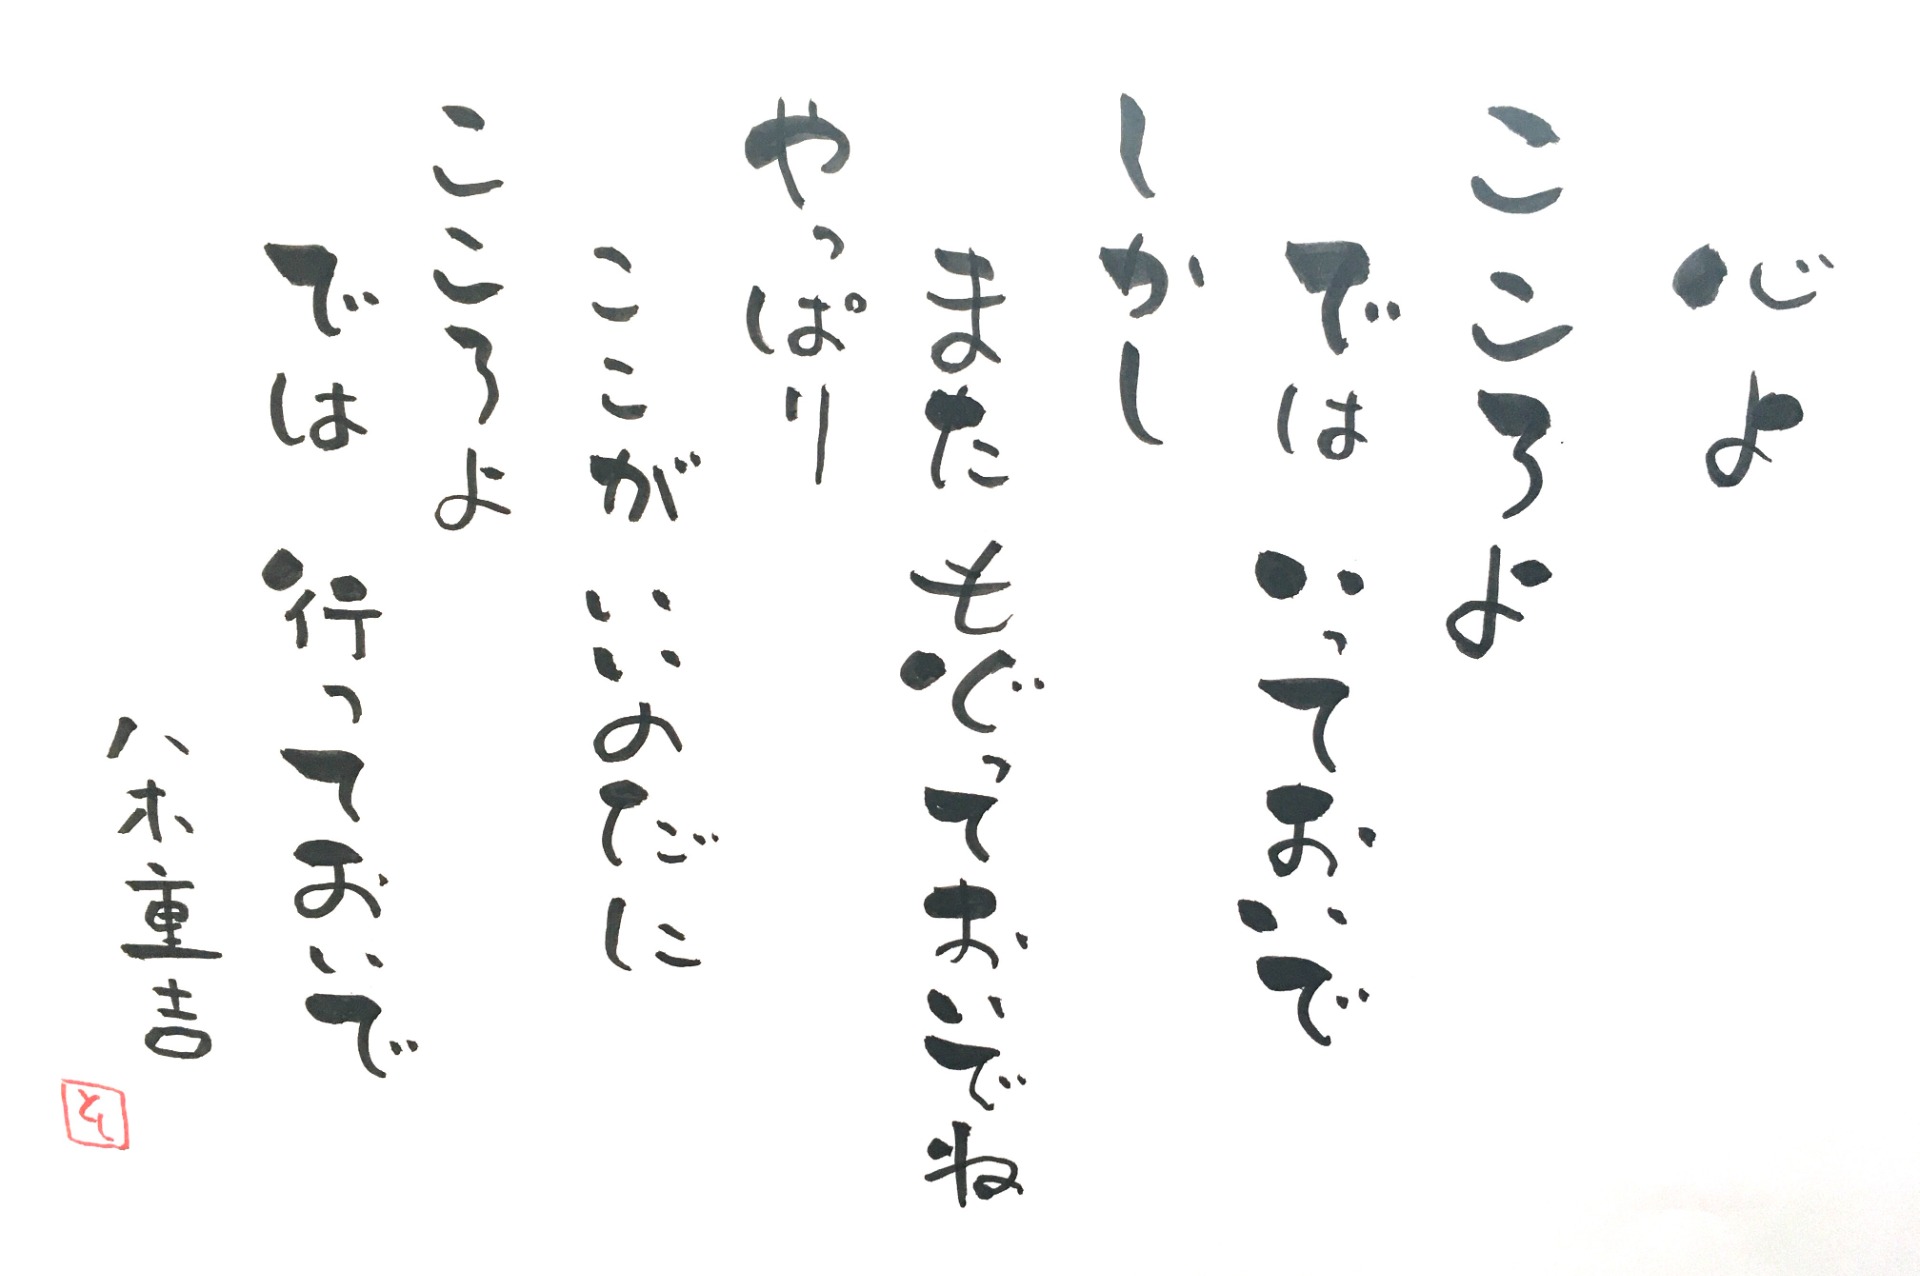 心よ
こころよ
では いっておいで
しかし
また もぐっておいでね
やっぱり
ここが いいのだに
こころよ
では 行っておいで
八木重吉
とし